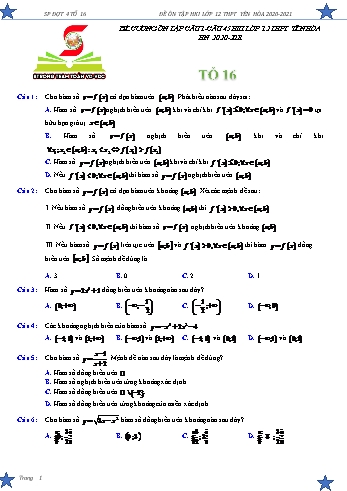 SP ĐỢT 4 TỔ 16 ĐỀ ÔN TẬP HKI LỚP 12 THPT YÊN HÒA 2020-2021
ĐỀ CƯƠNG ÔN TẬP CÂU 1-CÂU 45 HKI LỚP 12 THPT YÊN HÒA
HN 2020-2021
STRONG TEAM TOÁN VD-VDC
TỔ 16
Câu 1: Cho hàm số y=f(x) có đạo hàm trên (a;b). Phát biểu nào sau đây sai:
A. Hàm số y=f(x) nghịch biến trên (a;b) khi và chỉ khi f'(x)≤0,∀x∈(a;b) và f'(x)=0 tại
hữu hạn giá trị x∈(a;b).
B. Hàm số y=f(x) nghịch biến trên (a;b) khi và chỉ khi
∀x₁;x₂∈(a;b): x₁<x₂⇔f(x₁)>f(x₂)
C. Hàm số y=f(x) nghịch biến trên (a;b) khi và chỉ khi f'(x)≤0,∀x∈(a;b)
D. Nếu f'(x)<0,∀x∈(a;b) thì hàm số y=f(x) nghịch biến trên (a;b)
Câu 2: Cho hàm số y=f(x) có đạo hàm trên khoảng (a;b). Xét các mệnh đề sau:
I. Nếu hàm số y=f(x) đồng biến trên khoảng (a;b) thì f'(x)>0,∀x∈(a;b)
II. Nếu f'(x)<0,∀x∈(a;b) thì hàm số y=f(x) nghịch biến trên khoảng (a;b)
III. Nếu hàm số y=f(x) liên tục trên [a;b] và f'(x)>0,∀x∈(a;b) thì hàm y=f(x) đồng
biến trên [a;b]. Số mệnh đề đúng là
A. 3 B. 0 C. 2 D. 1
Câu 3: Hàm số y=2x⁴+1 đồng biến trên khoảng nào sau đây?
A. (0;+∞) B. (-∞;-1/2) C. (-1/2;+∞) D. (-∞;0)
Câu 4: Các khoảng nghịch biến của hàm số y=-x⁴+2x²-4
A. (-1;0) và (1;+∞) B. (-∞;1) và (1;+∞) C. (-1;0) và (0;1) D. (-∞;1) và (0;1)
Câu 5: Cho hàm số y=(x-1)/(x+2). Mệnh đề nào sau đây là mệnh đề đúng?
A. Hàm số đồng biến trên
B. Hàm số nghịch biến trên từng khoảng xác định
C. Hàm số đồng biến trên
D. Hàm số đồng biến trên từng khoảng của miền xác định
Câu 6: Cho hàm số hàm số đồng biến trên khoảng nào sau đây?
A. B. C. D.
Trang 1